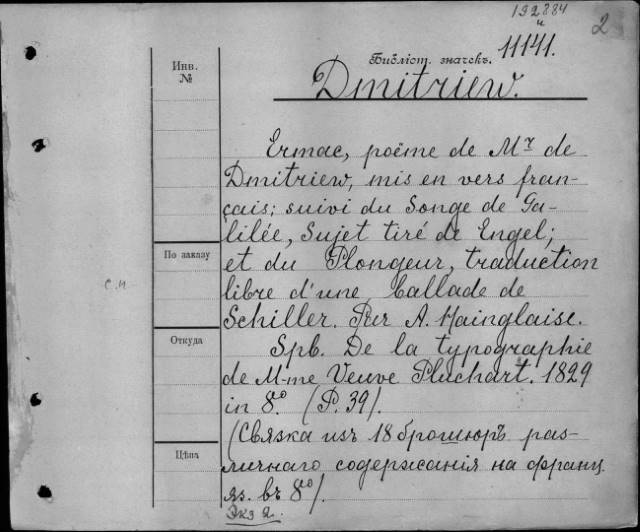 192884
и
11141.
2
Инв.
№
Библіот. значекъ.
Dmitriew.
Ermac, poëme de Mr de
Dmitriew, mis en vers fran-
çais; suivi du Songe de Ga-
lilée, Sujet tiré de Engel;
По заказу
et du Plongeur, traduction
libre d'une ballade de
С.И
Schiller. Par A. Mainglaise.
Откуда
Spb. De la typographie
de M-me Veuve Pluchart. 1829
in 8º. (P. 39).
(Связка изъ 18 брошюръ раз-
Цѣна
личнаго содержанія на франц.
яз. въ 8º).
Экз 2.